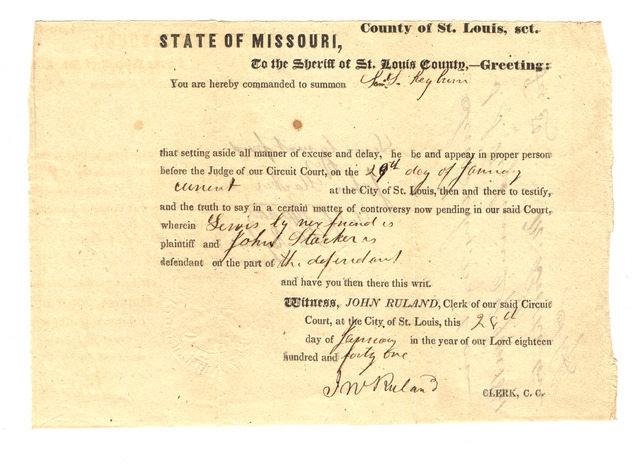 County of St. Louis, sct.
STATE OF MISSOURI,
To the Sheriff of St. Louis County,—Greeting:
You are hereby commanded to summon Saml. S. Reyburn
that setting aside all manner of excuse and delay, he be and appear in proper person
before the Judge of our Circuit Court, on the 29th day of January
current at the City of St. Louis, then and there to testify,
and the truth to say in a certain matter of controversy now pending in our said Court,
wherein Lewis by nex friend is
plaintiff and John Stacker is
defendant on the part of the defendant
and have you then there this writ.
Witness, JOHN RULAND, Clerk of our said Circuit
Court, at the City of St. Louis, this 28th
day of January in the year of our Lord eighteen
hundred and forty one
J W Ruland CLERK, C. C.